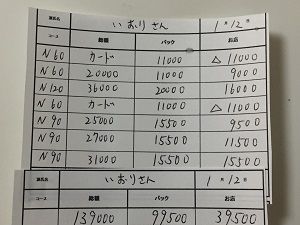 源氏名 いおりさん 1月12日
コース 総額 バック お店
N60 カード 11000 △11000
N60 20000 11000 9000
N120 36000 20000 16000
N60 カード 11000 △11000
N90 25000 15500 9500
N90 27000 15500 11500
N90 31000 15500 15500
源氏名 いおりさん 1月12日
コース 総額 バック お店
139000 99500 39500